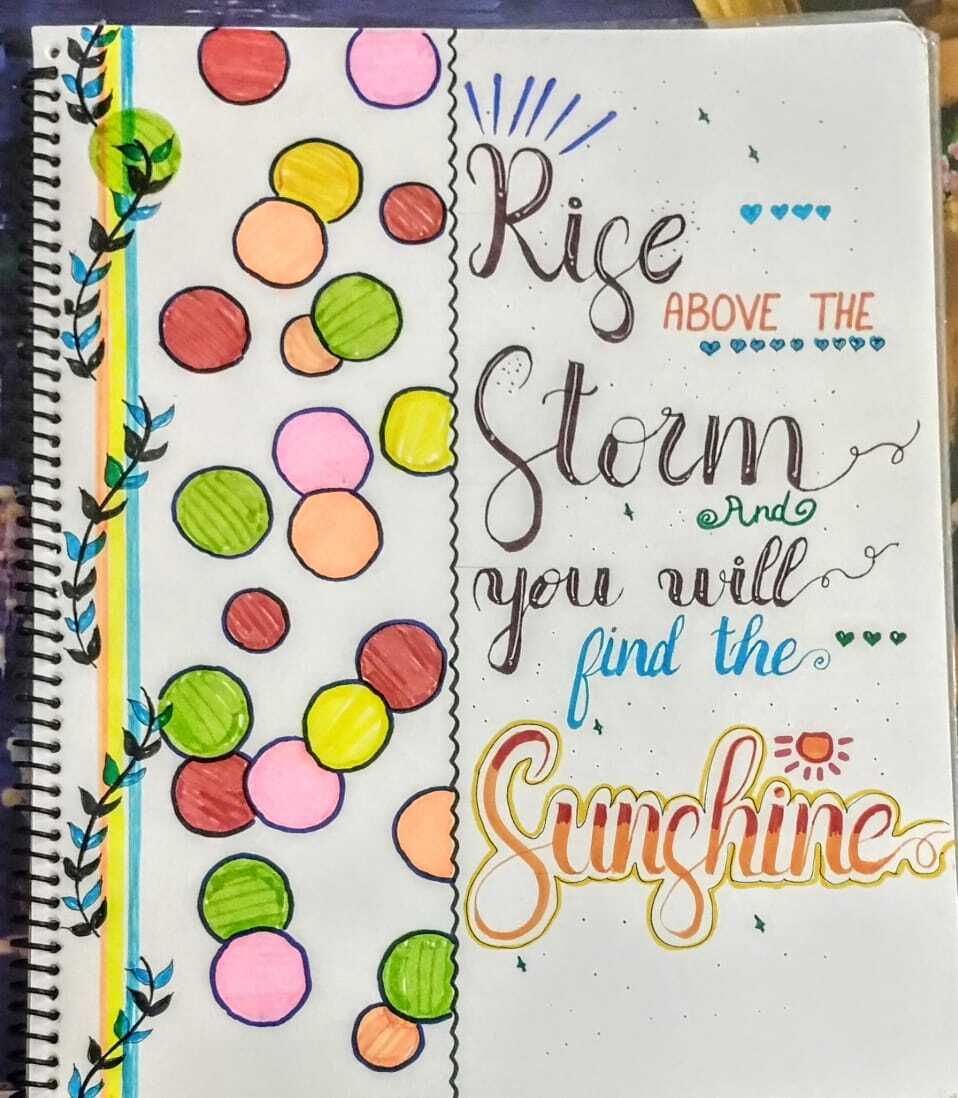 Rise
ABOVE THE
Storm
And
you will
find the
Sunshine